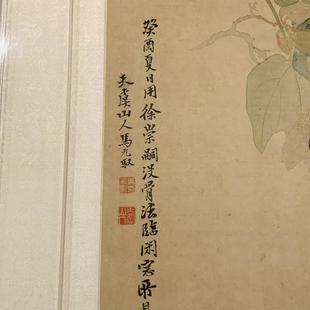 癸酉夏日用徐崇嗣没骨法臨閑窓所見
天溪山人馬元馭